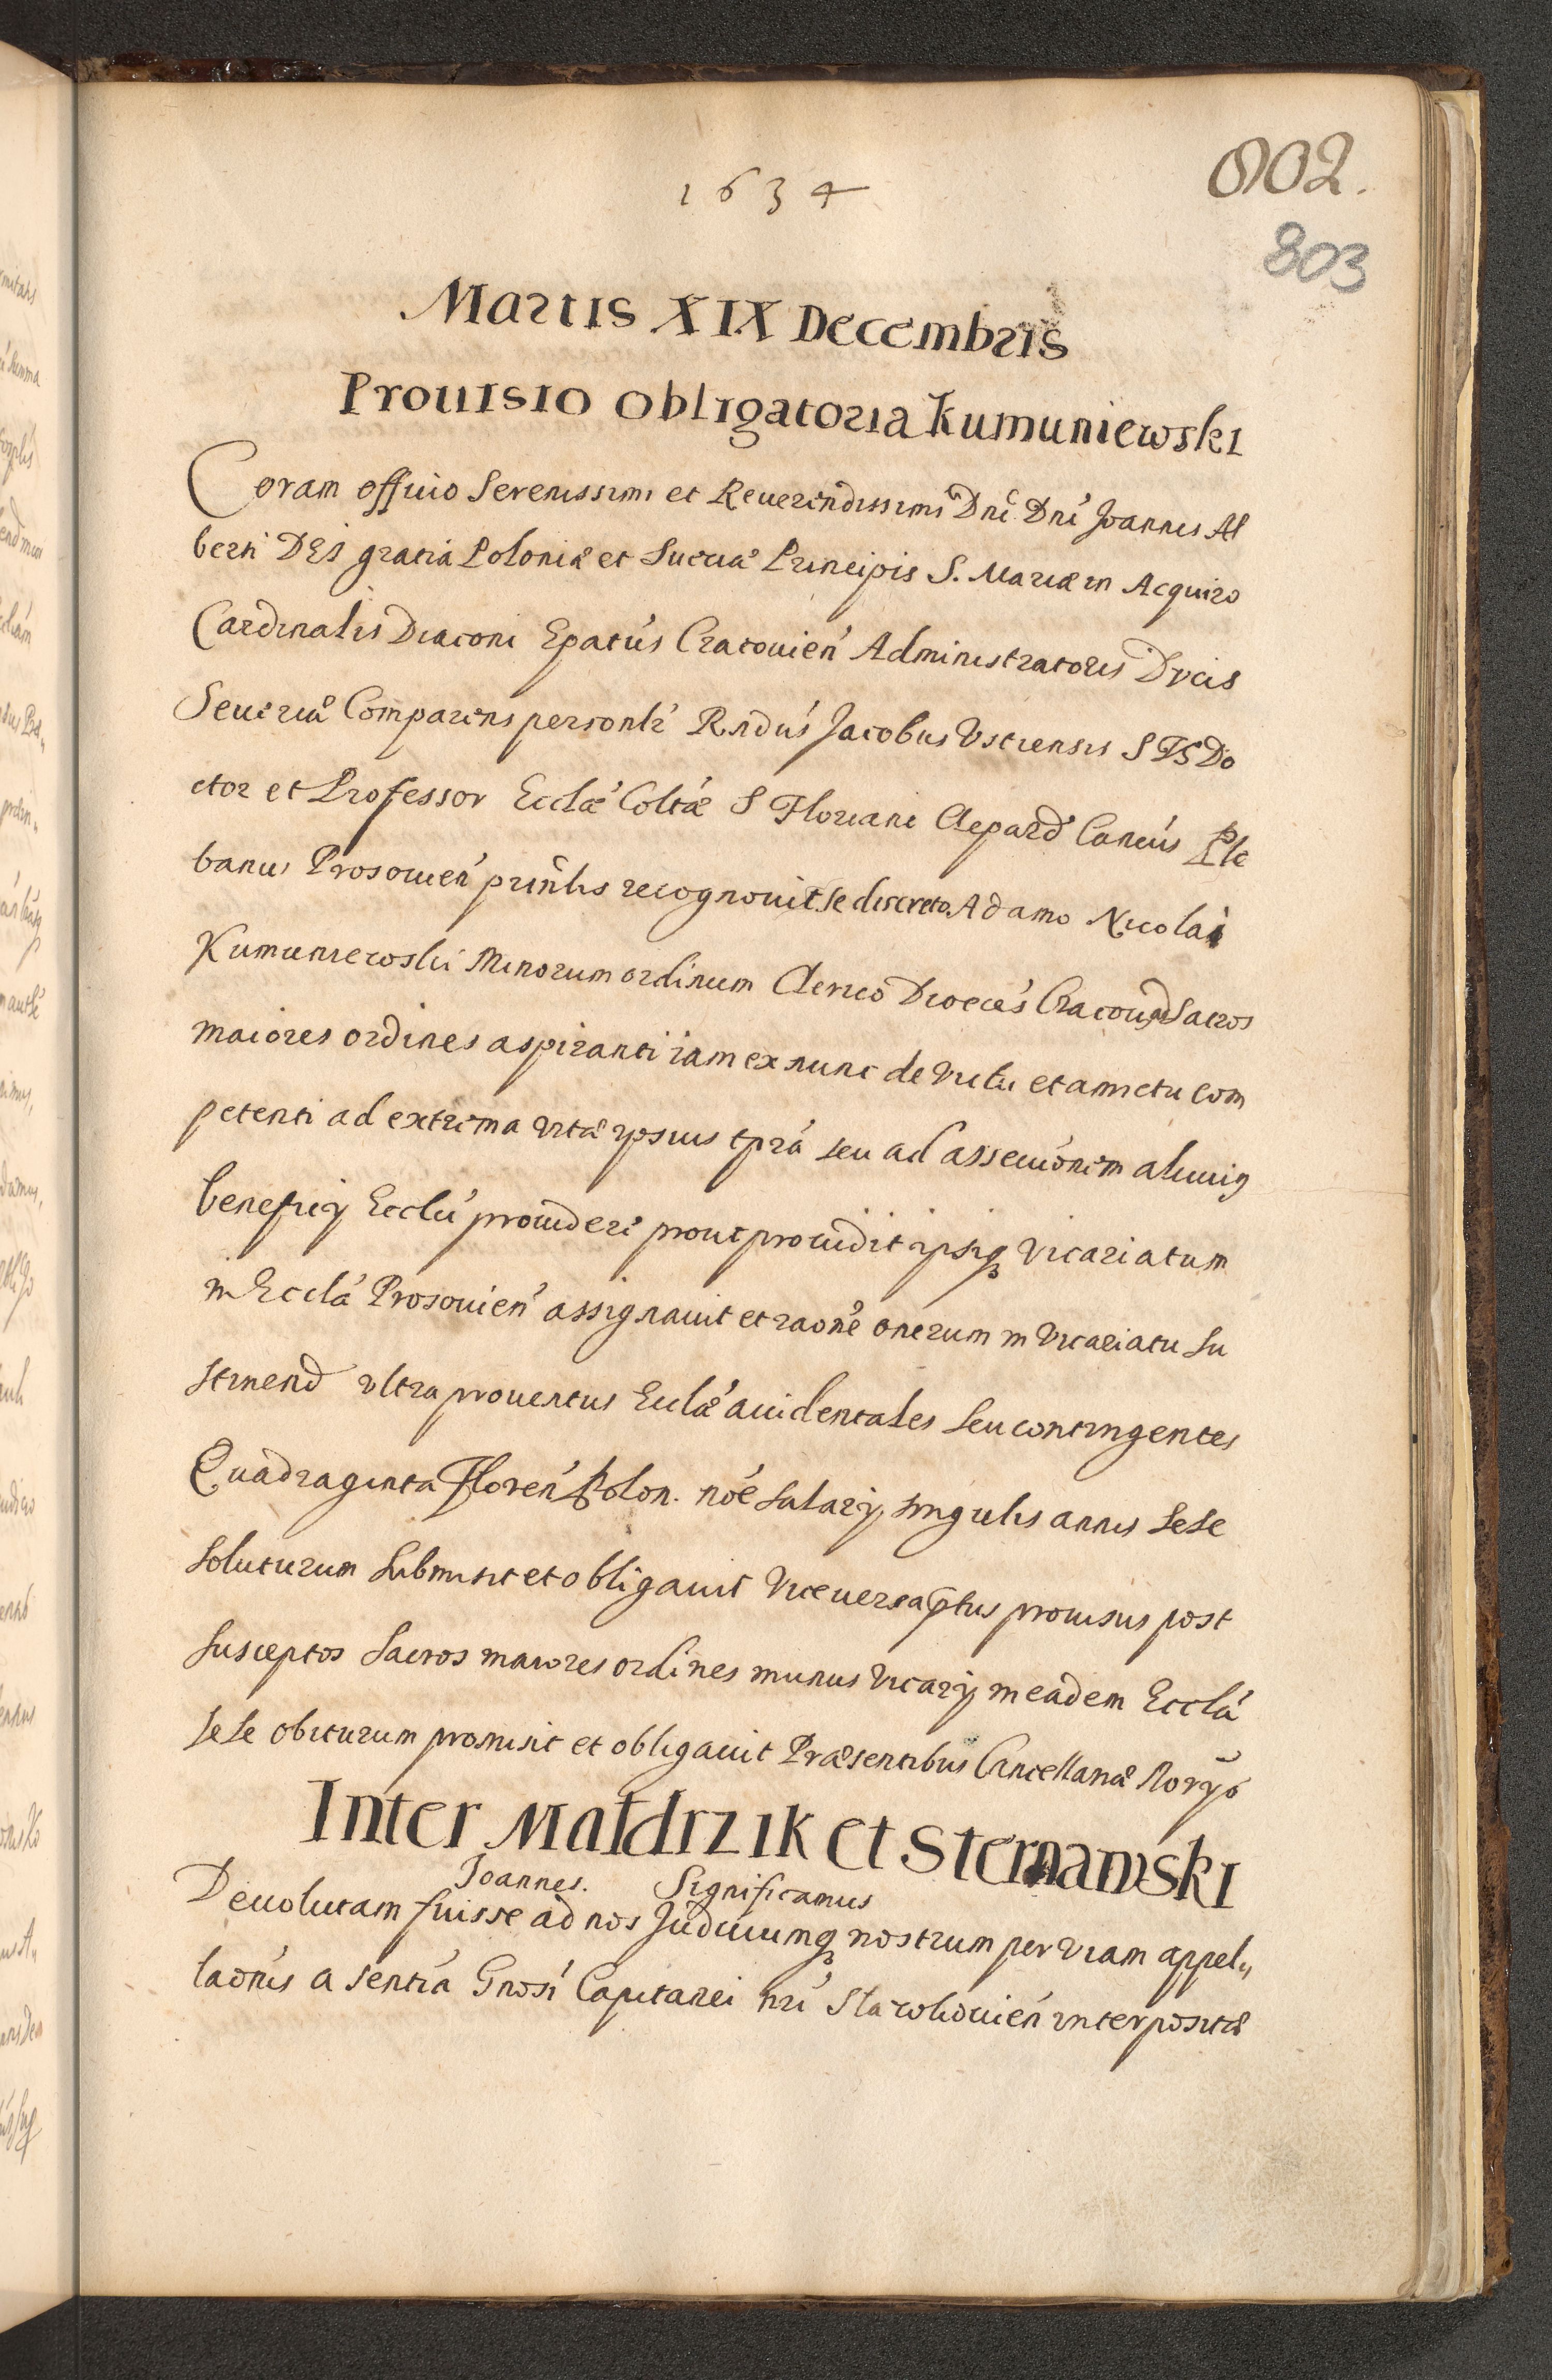 1634
802.
803
Martis XIX Decembris
Prouisio obligatoria Kumuniewski
Coram officio Serenissimi et Reuerendissimi Dni Dni Joannis Al
berti DEI gratia Poloniæ et Sueciæ Principis S. Mariæ in Acquiro
Cardinalis Diaconi Epatus Cracouien Administratoris Ducis
Seueriæ Comparens personlr Rndus Jacobus Vsciensis S Do
ctor et Professor Ecclæ Coltæ S Floriani Clepard Cancus Ple
banus Prosouien prinlis recognouit se discreto Adamo Nicolai
Kumuniewski Minorum ordinum Clerico Dioeces Cracouien ad Sacros
maiores ordines aspiranti iam ex nunc de victu et amictu com
petenti ad extrema vitæ ipsius tpra seu ad assecuonem alicuiq
beneficij Ecclci prouidere prout prouidit ipsiq Vicariatum
in Eccla Prosouien assignauit et raone onerum in Vicariatu su
stinend vltra prouentus Ecclæ accidentales seu contingentes
Quadraginta Floren Polon. noe salarij singulis annis sese
soluturum submisit et obligauit Viceuersa ptus prouisus post
susceptos sacros maiores ordines munus Vicarij in eadem Eccla
sese obiturum promisit et obligauit Præsentibus Cancellariæ Noryo
Inter Małdrzik et Sternawski
Joannes. Significamus
Deuolutam fuisse ad nos Judiciumq nostrum per viam appel
laonis a sentia Gnosi Capitanei nri Slawkouien interpositæ